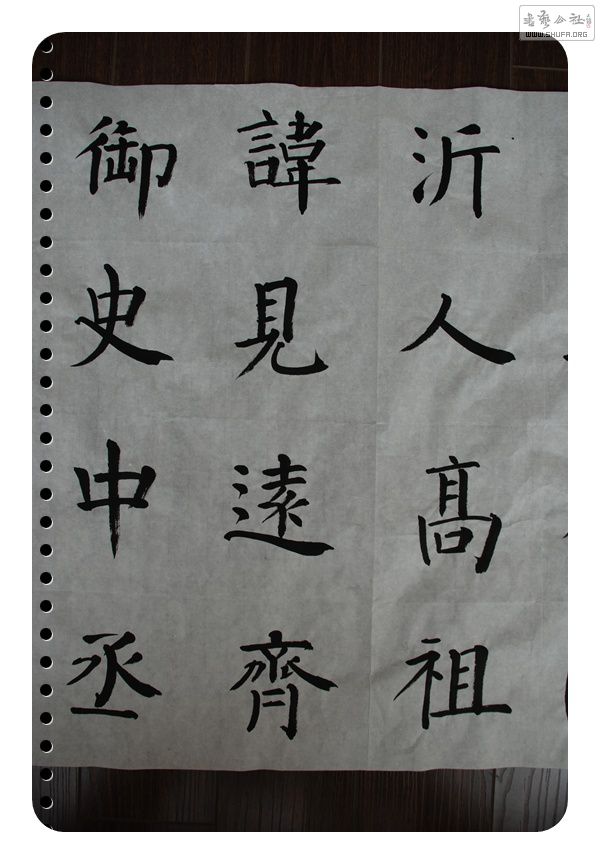 沂人高祖
諱見遠齊
御史中丞
书艺公社
WWW.SHUFA.ORG